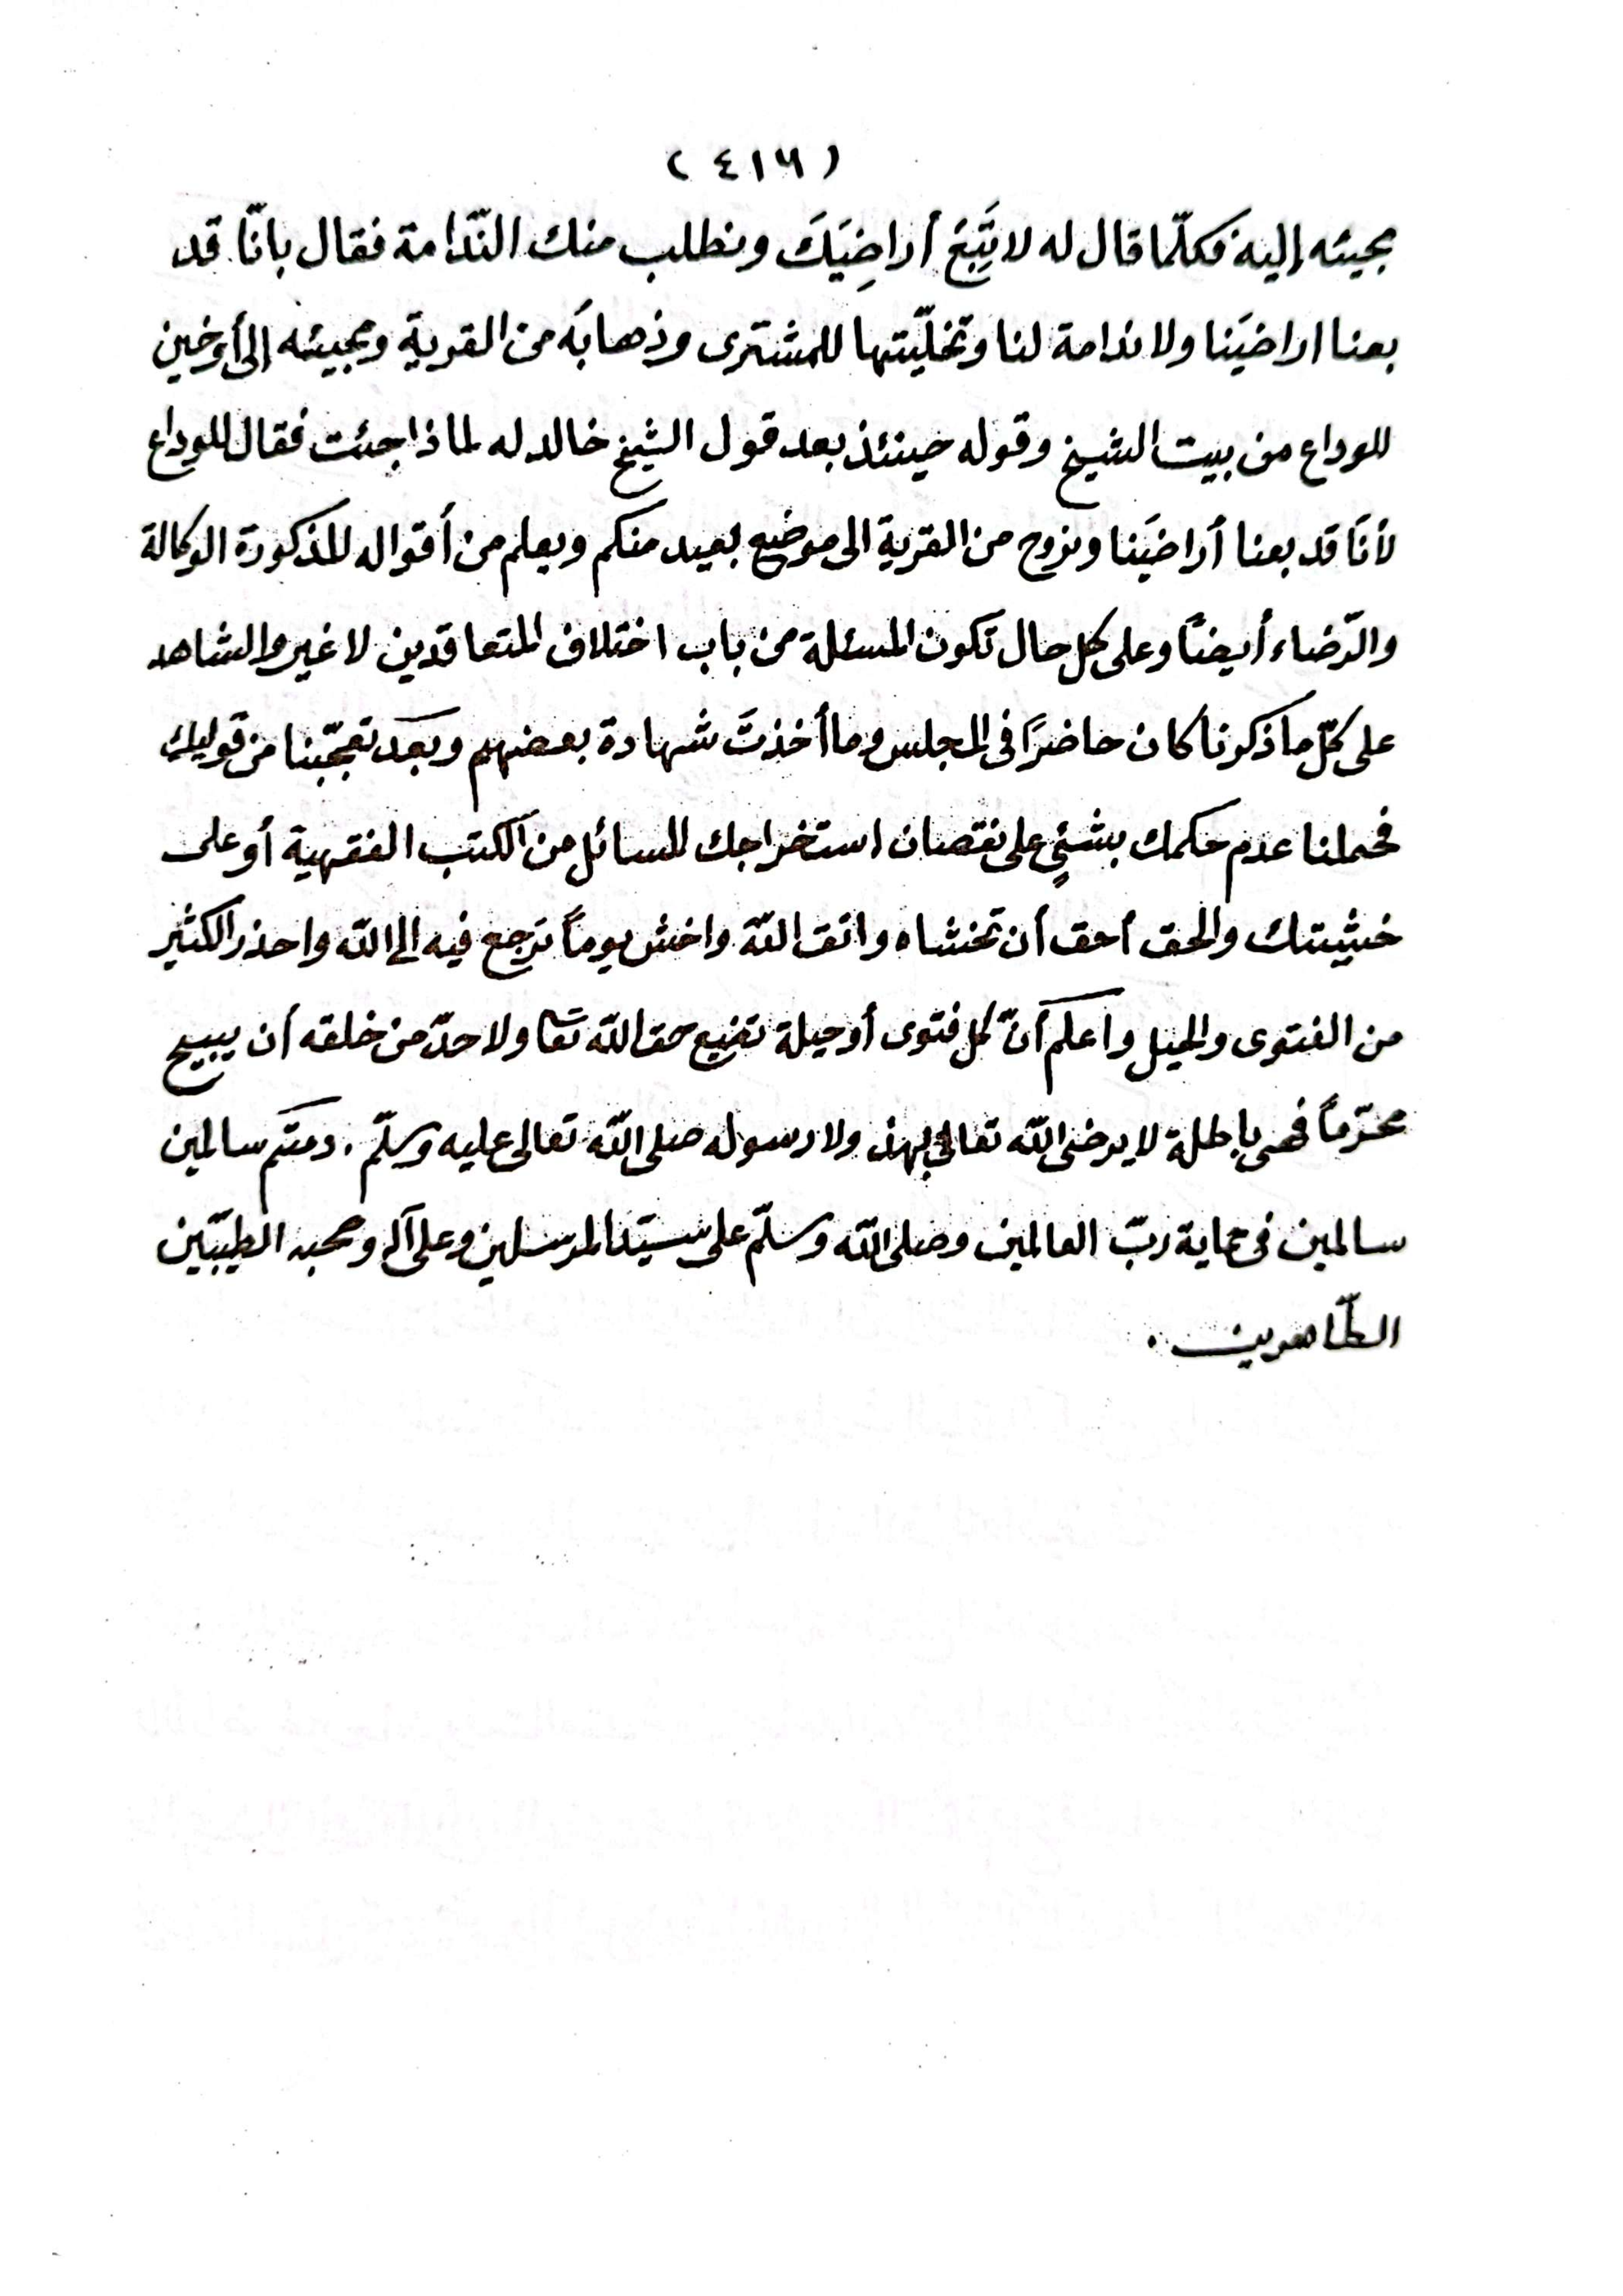 (٤١٦)
بمجيئه إليه فكلّما قال له لا تَبِعْ أراضِيَكَ ونطلب منك النّدامة فقال بانّا قد
بعنا اراضيَنا ولا ندامة لنا وتخليّتها للمشترى وذهابَه من القرية ومجيئه إلى أوخين
للوداع من بيت الشيخ وقوله حينئذ بعد قول الشيخ خالد له لماذا جئت فقال للوداع
لأنَا قد بعنا أراضيَنا ونروح من القرية الى موضع بعيد منكم ويعلم من أقواله المذكورة الوكالة
والرّضاء أيضاً وعلى كل حال تكون المسئلة من باب اختلاف المتعاقدين لا غير والشاهد
على كلّ ما ذكرنا كان حاضرًا فى المجلس وما أخذتَ شهادة بعضهم وبعد تعجّبنا من قوليك
فحملنا عدم حكمك بشئٍ على نقصان استخراجك المسائل من الكتب الفقهية أو على
خشيتك والحق أحق أن تخشاه واتق اللّه واخش يوماً ترجع فيه الى اللّه واحذر الكثير
من الفتوى والحيل واعلم أنّ كل فتوى أو حيلة تضيع حق اللّه تعا ولاحدّ من خلقه أن يبيح
محرّماً فهى باطلة لا يرضى اللّه تعالى بهذ ولا رسوله صلى اللّه تعالى عليه وسلّم. دمتم سالمين
سالمين فى حماية ربّ العالمين وصلى اللّه وسلّم على سيّد المرسلين وعلى آله وصحبه الطيّبين
الطّاهرين.